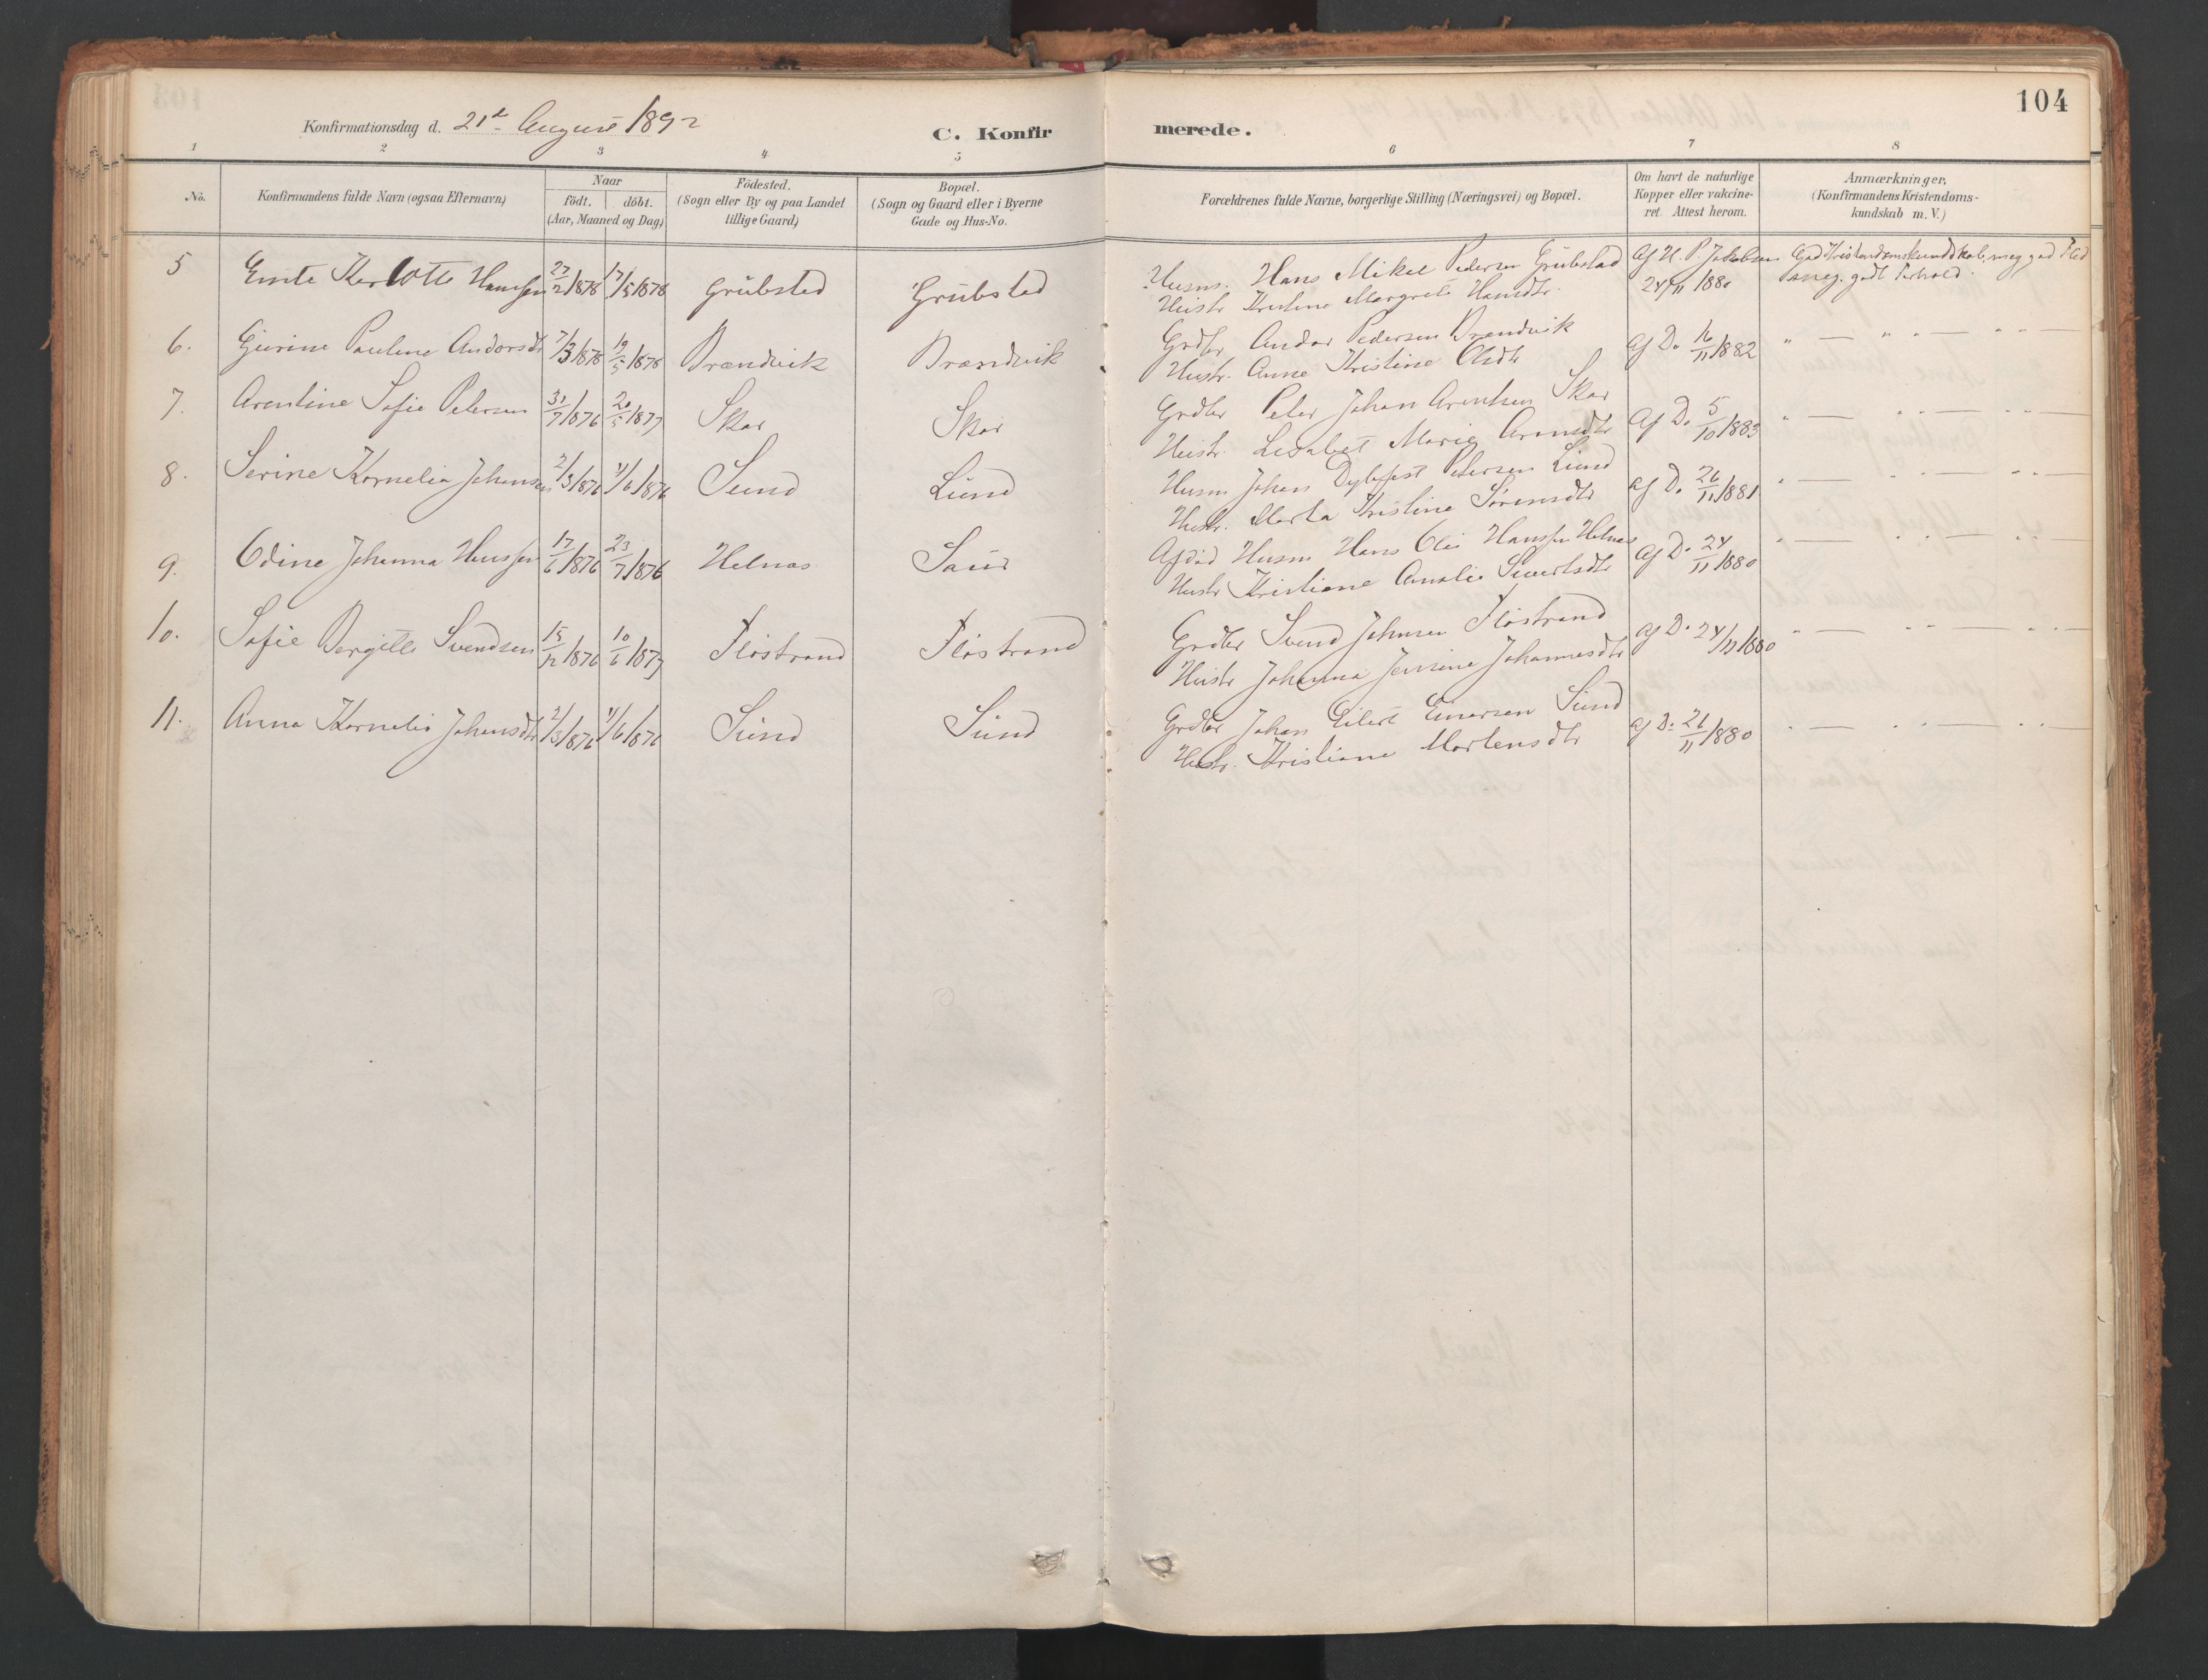 104
Konfirmationsdag d. 21de August 1892
C. Konfirmerede.
1 2 3 4 5 6 7 8
No. Konfirmandens fulde Navn (ogsaa Efternavn) Naar födt. döbt. (Aar, Maaned og Dag) Födested. (Sogn eller By og paa Landet tillige Gaard) Bopæl. (Sogn og Gaard eller i Byerne Gade og Hus-No. Forældrenes fulde Navne, borgerlige Stilling (Næringsvei) og Bopæl. Om havt de naturlige Kopper eller vakcineret. Attest herom. Anmærkninger, (Konfirmandens Kristendomskundskab m. V.)
5 Karlotte Hansen 27/2 1878 17/5 1878 Grübstad Grübstad Husm. Hans Mikel Pedersen Grübstad Af H. P. Jakobsen God Kristendomskundskab, meg. god Flid
Hustr. Margrete Hansdtr. 24/11 1880 og meg. godt Forhold.
6. Gurine Pauline Andorsdtr 7/3 1878 19/5 1878 Brandvik Brandvik Grdbr Andor Pedersen Brandvik Af Do 16/11 1882 " — " " — " " —
Hustr. Anne Kristine Olsdtr
7. Arentine Sofie Petersen 31/7 1876 20/5 1877 Skar Skar Grdbr Peter Johan Arentsen Skar Af Do 5/10 1883 " — " " — " " —
Hustr. Lisabet Marie Arnsdtr
8. Serine Kornelia Johansen 2/3 1876 11/6 1876 Sund Lund Husm Johan Petersen Lund Af Do 26/11 1881 " — " — " " —
Hustr. Marta Kristine Sörensdtr
9. Odine Johanna Hansen 17/6 1876 23/7 1876 Helnes Saur Afdöd Husm Hans Ole Hansen Helnes Af Do 24/11 1880 " — " " — " " —
Hustr Kristiane Amalie Sivertsdtr
10. Sofie Bergitte Svendsen 15/12 1876 10/6 1877 Flostrand Flostrand Grdbr Svend Johnsen Flostrand Af Do 24/11 1880 " — " " — " " —
Hustr Johanna Jensine Johannesdtr
11. Anna Kornelia Johansdtr 2/3 1876 11/6 1876 Sund Sund Grdbr Johan Eilert Einersen Sund Af Do 26/11 1880 " — " " — " " —
Hustr. Kristiane Mortensdtr